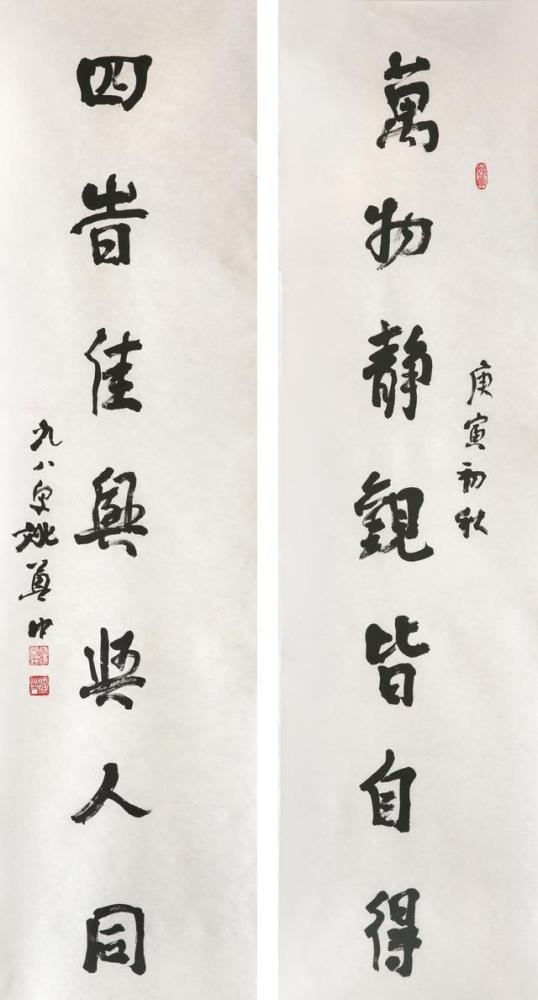 庚寅初秋
萬物静觀皆自得
四旹佳興與人同
九八叟姚奠中